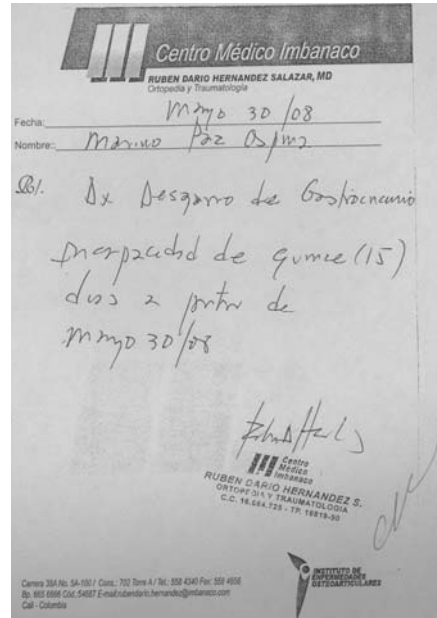 Centro Médico Imbanaco
RUBEN DARIO HERNANDEZ SALAZAR, MD
Ortopedia y Traumatología
Fecha: Mayo 30/08
Nombre: Marino Paz Ospina
Dx Desgarro de Gastrocnemio
Incapacidad de quince (15)
dias a partir de
Mayo 30/08
Centro
Médico
Imbanaco
RUBEN DARIO HERNANDEZ S.
ORTOPEDIA Y TRAUMATOLOGIA
C.C. 16.664.725 - TP. 16219-90
INSTITUTO DE
ENFERMEDADES
OSTEOARTICULARES
Carrera 38A No. 5A-100 / Cons.: 702 Torre A / Tel.: 558 4340 Fax: 558 4656
Bp. 665 6666 Cód.:54667 E-mail:rubendario.hernandez@imbanaco.com
Cali - Colombia